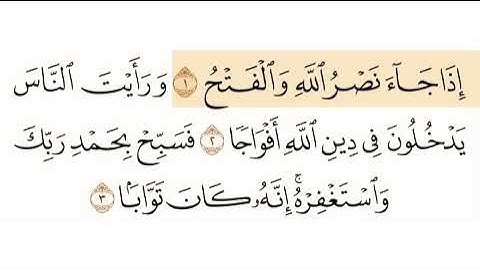 إِذَا جَآءَ نَصْرُ ٱللَّهِ وَٱلْفَتْحُ ١ وَرَأَيْتَ ٱلنَّاسَ
يَدْخُلُونَ فِى دِينِ ٱللَّهِ أَفْوَاجًا ٢ فَسَبِّحْ بِحَمْدِ رَبِّكَ
وَٱسْتَغْفِرْهُ ۚ إِنَّهُۥ كَانَ تَوَّابًۢا ٣